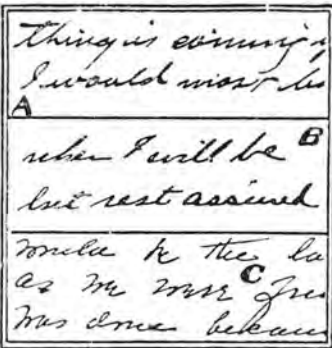 thing is coming
I would most
A
when I will be B
but rest assured
would be the la
as we were C
was done becaus